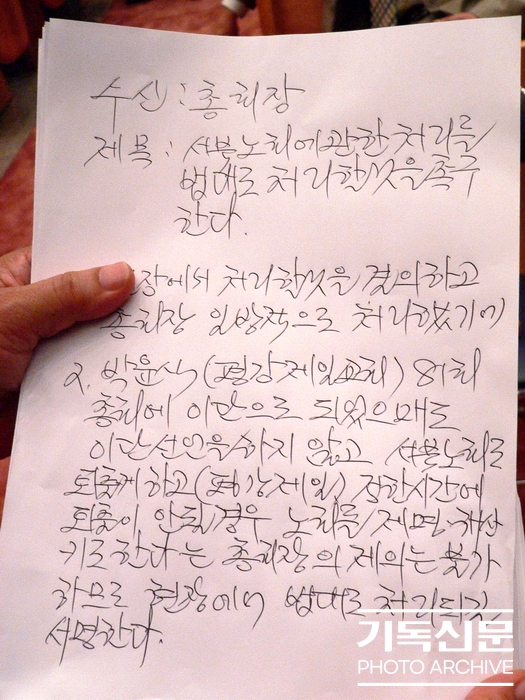 수신 : 총회장
제목 : 서북노회에관한 처리를
법대로 처리할것을 촉구
한다.
장에서 처리할것을 결의하고
총회장 일방적으로 처리했기에
2. 박윤식(평강제일교회) 81회
총회에 이단으로 되었으매도
이단선언을 하지 않고 서북노회로
퇴출케 하고(평강제일) 정한시간에
퇴출이 안될경우 노회를 제명·해산
키로 한다는 총회장의 제의는 불가
하므로 현장에서 법대로 처리되길
서명한다.
기독신문
PHOTO ARCHIVE